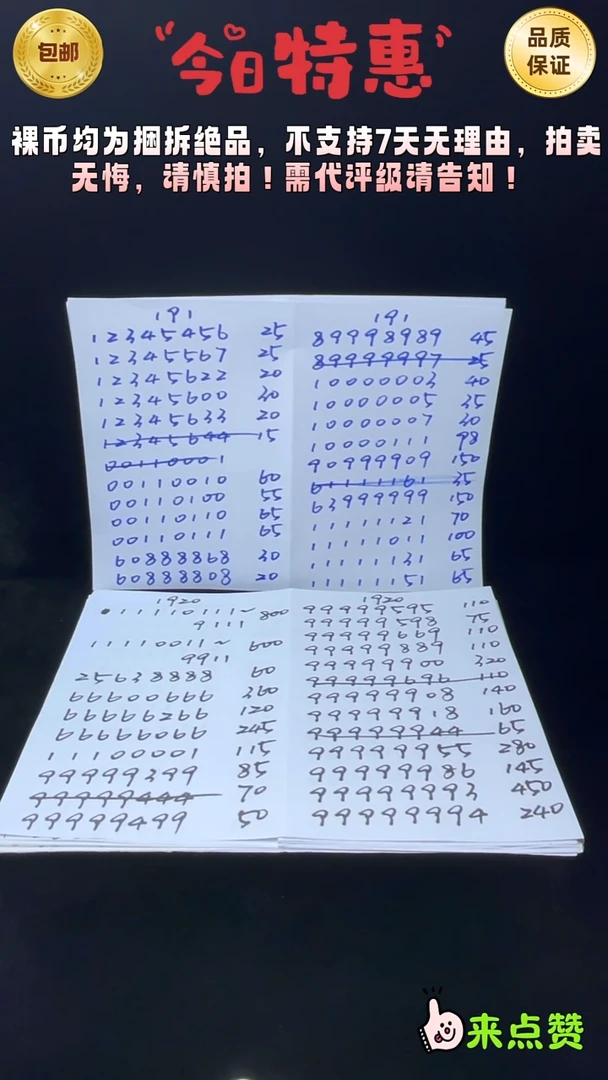 包邮
今日特惠
品质
保证
裸币均为捆拆绝品，不支持7天无理由，拍卖
无悔，请慎拍！需代评级请告知！
191
12345456 25
12345567 25
12345622 20
12345600 30
12345633 20
12345644 15
00110001
00110010 60
00110100 55
00110110 65
00110111 65
60888868 30
60888808 20
191
89998989 45
89999997 25
10000003 40
10000005 35
10000007 30
10000111 98
90999909 150
61111161 35
63999999 150
11111121 70
11111011 100
11111131 65
11111151 65
1920
11110111~ 800
9111
11110011~ 600
9911
25638888 60
66600666 360
66666266 120
66666066 245
11100001 115
99999399 85
99999444 70
99999499 50
1920
99999595 110
99999598 75
99999669 110
99999889 110
99999900 320
99999696 110
99999908 140
99999918 160
99999944 65
99999955 280
99999986 145
99999993 450
99999994 240
来点赞